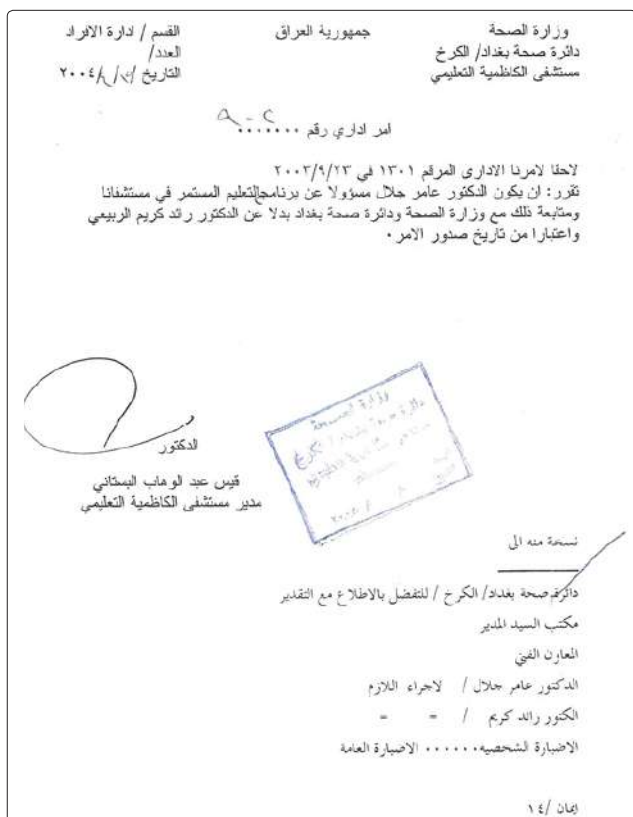 وزارة الصحة
دائرة صحة بغداد/ الكرخ
مستشفى الكاظمية التعليمي
جمهورية العراق
القسم / ادارة الافراد
العدد/
التاريخ / / ٢٠٠٤
امر اداري رقم ٠٠٠٠٠٠٠
لاحقا لامرنا الاداري المرقم ١٣٠١ في ٢٠٠٣/٩/٢٣
تقرر: ان يكون الدكتور عامر جلال مسؤولا عن برنامج التعليم المستمر في مستشفانا
ومتابعة ذلك مع وزارة الصحة ودائرة صحة بغداد بدلا عن الدكتور رائد كريم الربيعي
واعتبارا من تاريخ صدور الامر ٠
الدكتور
قيس عبد الوهاب البستاني
مدير مستشفى الكاظمية التعليمي
وزارة الصحة
دائرة صحة بغداد / الكرخ
نسخة منه الى
دائرة صحة بغداد/ الكرخ / للتفضل بالاطلاع مع التقدير
مكتب السيد المدير
المعاون الفني
الدكتور عامر جلال / لاجراء اللازم
الكتور رائد كريم / = =
الاضبارة الشخصيه٠٠٠٠٠٠ الاضبارة العامة
ايمان /١٤